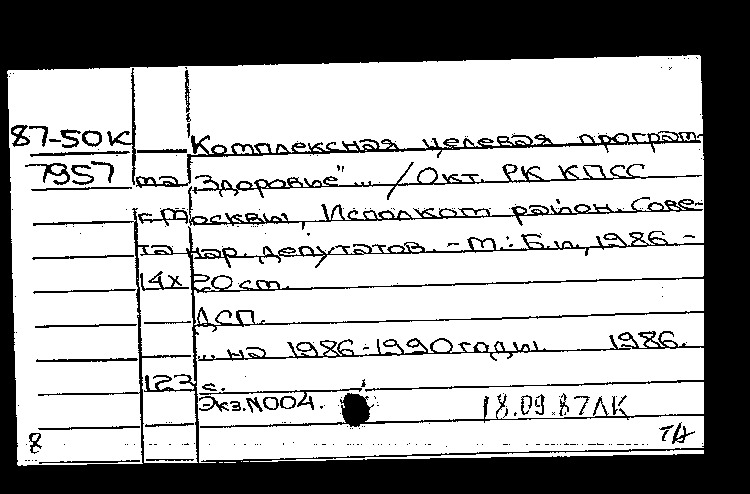 87-50К Комплексная целевая програм-
7957 ма „Здоровье" ... / Окт. РК КПСС
г. Москвы, Исполком район. Сове-
та нар. депутатов. - М.: Б.и., 1986. -
14х20 см.
ДСП.
... на 1986-1990 годы. 1986.
123 с.
Экз. N004. 18.09.87ЛК
8